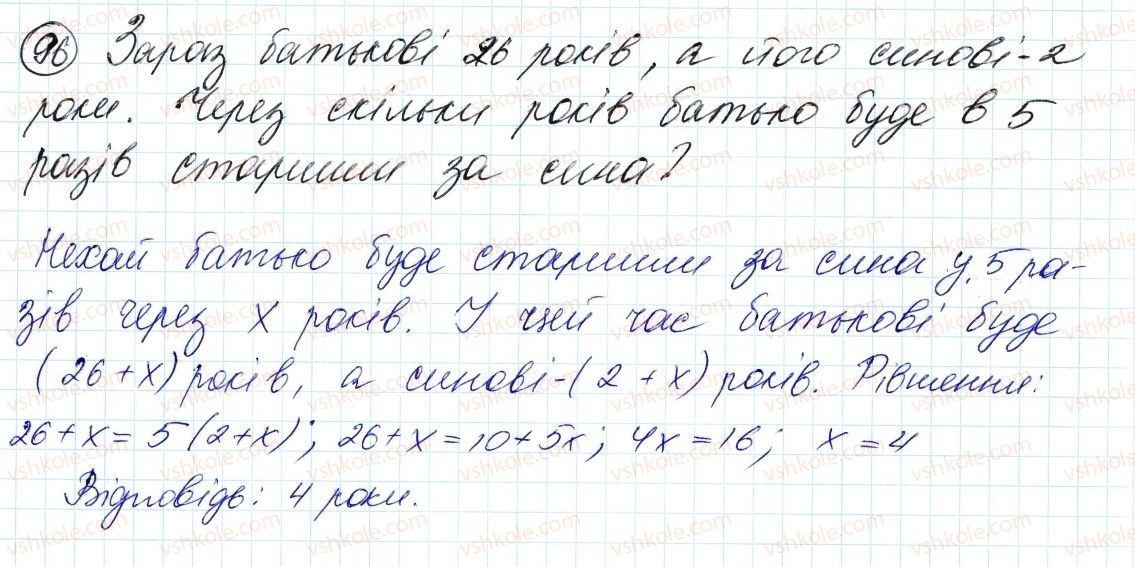 96 Зараз батькові 26 років, а його синові - 2
роки. Через скільки років батько буде в 5
разів старший за сина?
Нехай батько буде старшим за сина у 5 ра-
зів через х років. У цей час батькові буде
(26 + х) років, а синові - (2 + х) років. Рівняння:
26 + х = 5 (2 + х); 26 + х = 10 + 5х; 4х = 16; х = 4
Відповідь: 4 роки.